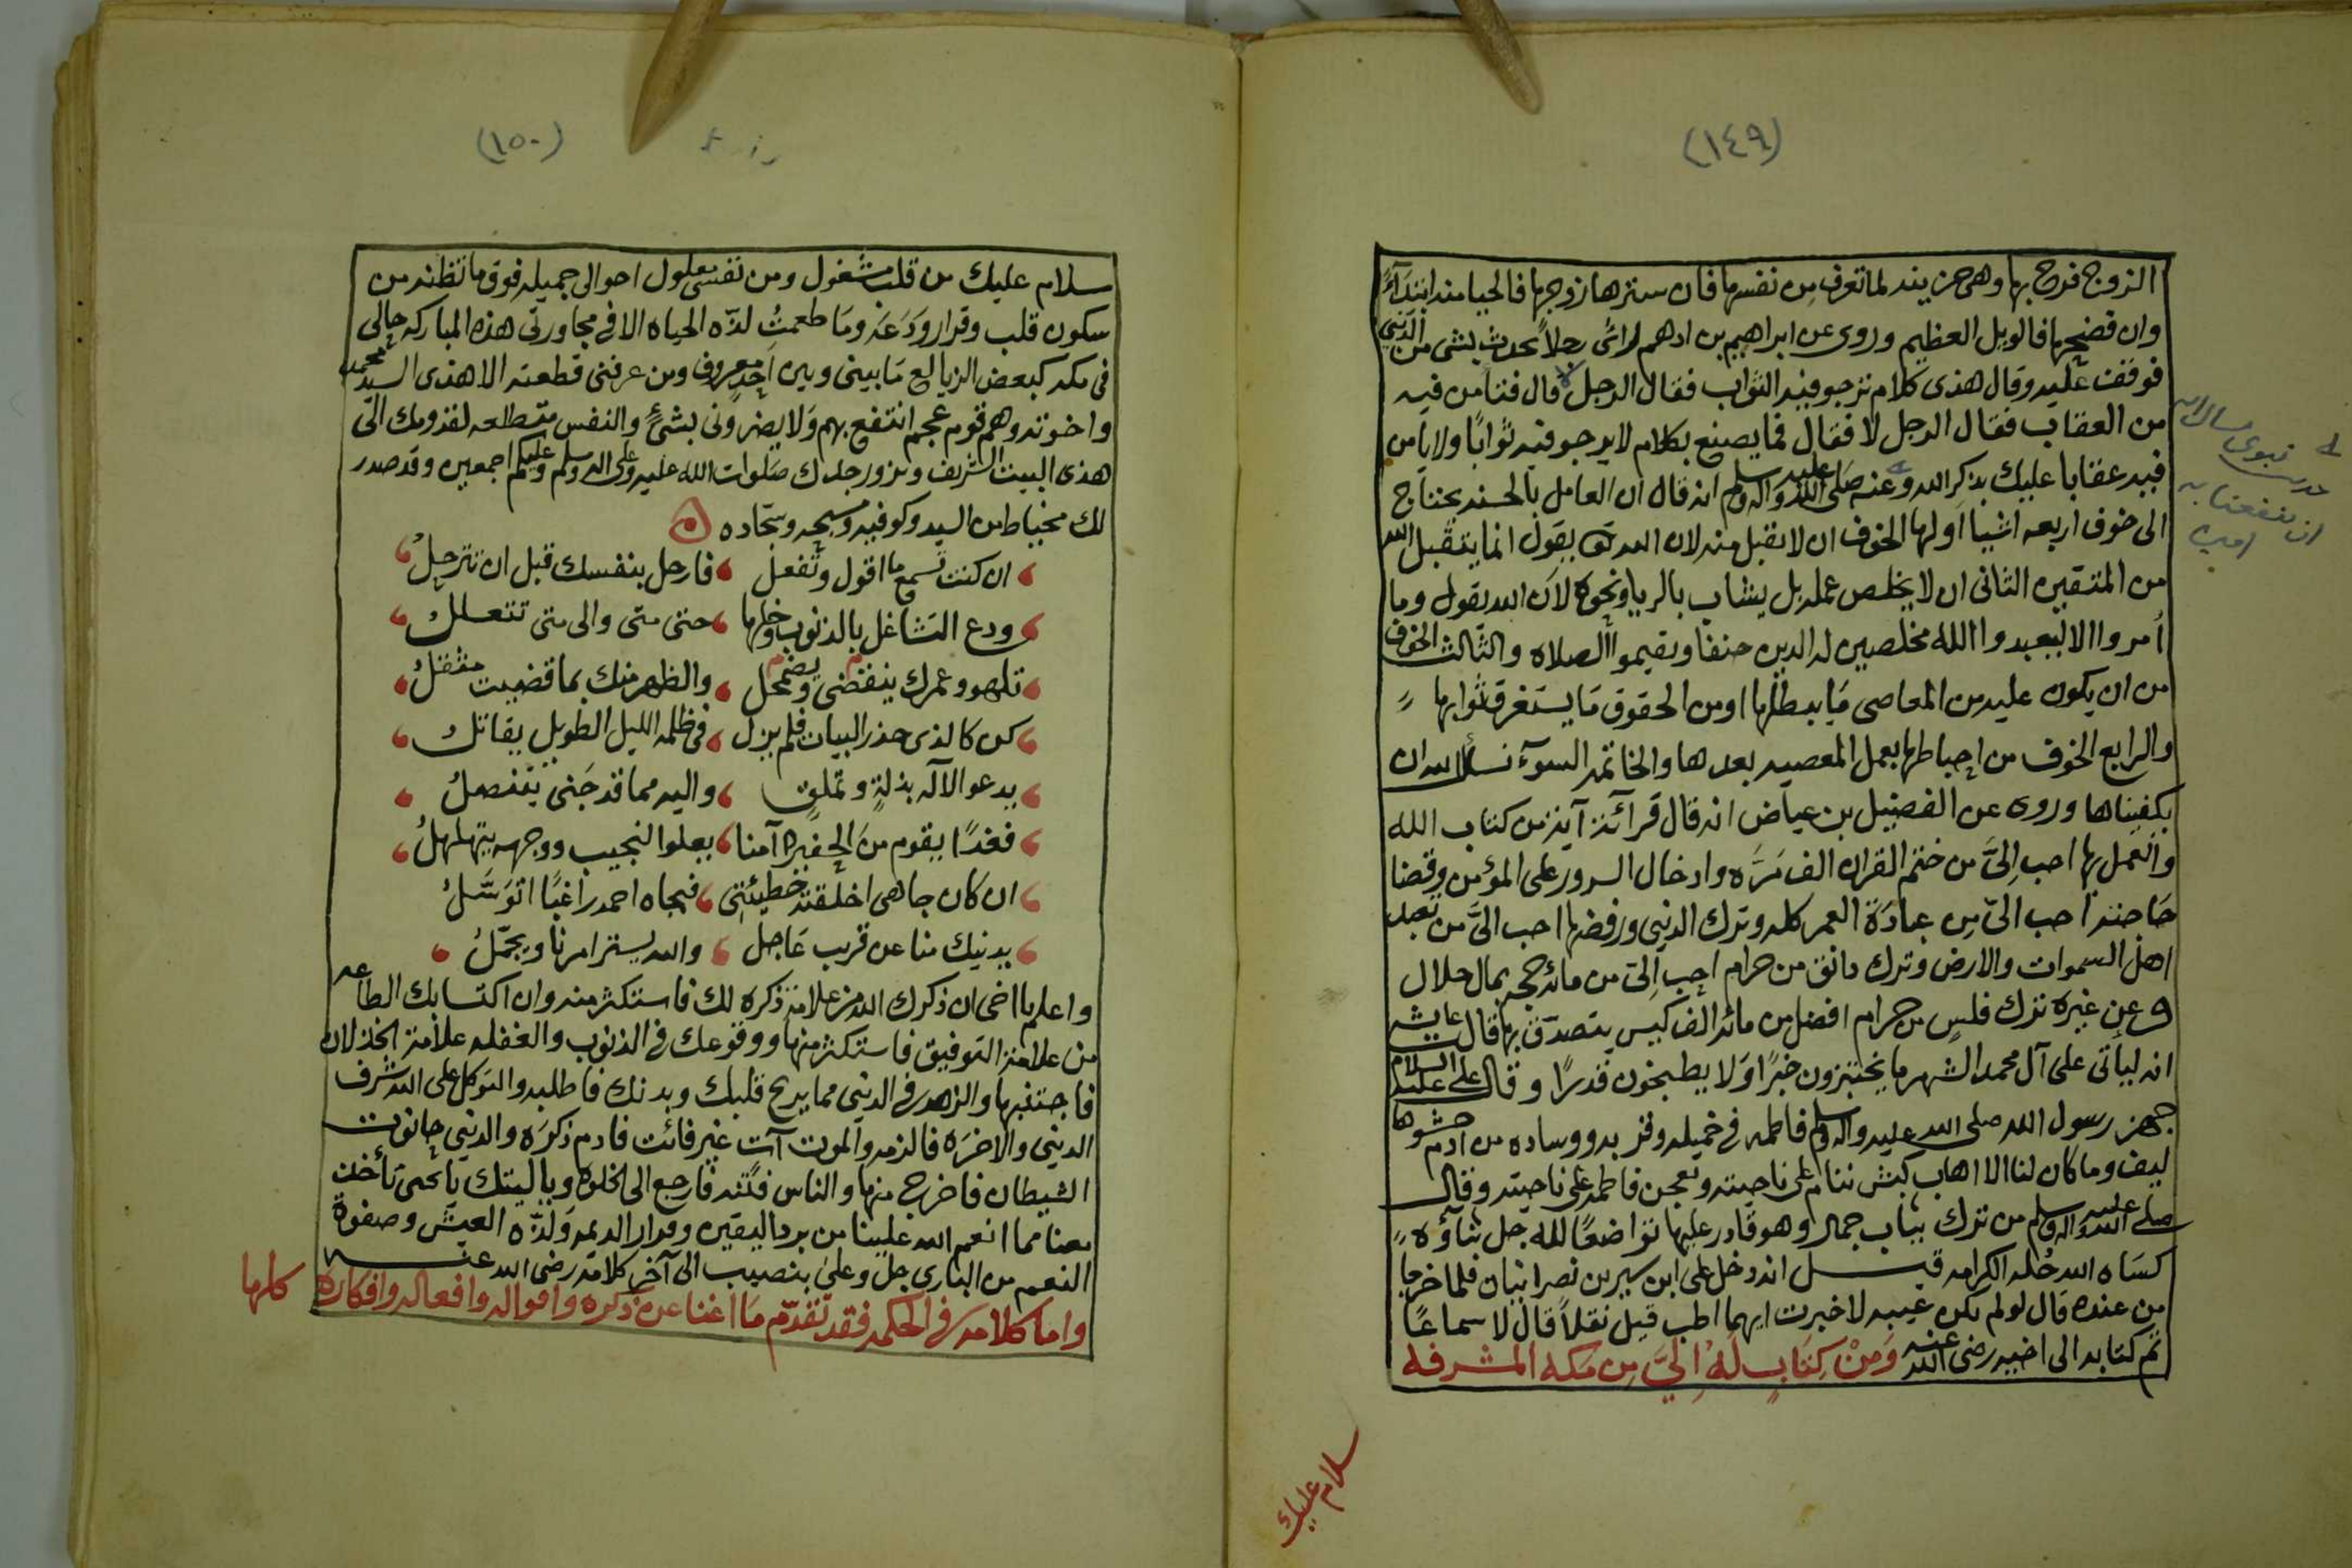 (١٤٩)
الزوج فرح بها وهي حزينه لما تعرف من نفسها فان سترها زوجها فالحيا منه ابتدآءً
وان فضحها فالويل العظيم وروى عن ابراهيم بن ادهم راى رجلاً يحدث بشى من الدنيى
فوقف عليه وقال هذى كلام ترجو فيه الثواب فقال الرجل لا قال فتامن فيه
من العقاب فقال الرجل لا فقال فما يصنع بكلام لا يرجو فيه ثوابًا ولا يامن
فيه عقابا عليك بذكر الله وعنه صلى الله عليه واله وسلم انه قال ان العامل بالحسنه يحتاج
الى خوف اربعه اشيا اولها الخوف ان لا تقبل منه لان الله تعالى يقول انما يتقبل الله
من المتقين الثانى ان لا يخلص عمله بل يشاب بالريا ونحوه لان الله يقول وما
أمروا الا ليعبدوا الله مخلصين له الدين حنفا ويقيموا الصلاه والثالث الخوف
من ان يكون عليه من المعاصى ما يبطلها او من الحقوق ما يستغرق ثوابها
والرابع الخوف من احباطها بعمل المعصيه بعدها والخاتمه السوء نسئل الله ان
يكفيناها وروى عن الفضيل بن عياض انه قال قرآئة آية من كتاب الله
والعمل بها احب اليَّ من ختم القران الف مرَّه وادخال السرور على المؤمن وقضا
حاجته احب اليّ من عبادَة العمر كله وترك الدنيى ورفضها احب اليَّ من تعبد
اهل السموات والارض وترك دانق من حرام احب اليّ من مائة حجه بمال حلال
وعن غيره ترك فلس من حرام افضل من مائة الف كبيس يتصدق بها قال عايشه
انه لياتى على آل محمد الشهر ما يختبزون خبزًا ولا يطبخون قدرًا وقال علي عليه السلام
جهز رسول الله صلى الله عليه واله وسلم فاطمه فى خميله وقربه ووساده من ادم حشوها
ليف وما كان لنا الا اهاب كبش ننام على ناحيته وتعجن فاطمه على ناحيته وقال
صلى الله عليه واله وسلم من ترك ثياب جمال وهو قادر عليها تواضعًا لله جل ثناؤه
كساه الله حُلة الكرامه قيل انه دخل على ابن سيرين نصرانيان فلما خرجا
من عنده قال لو لم تكن غيبه لاخبرت ايهما اطب قيل نقلاً قال لا سماعًا
تم كتابه الى اخيه رضى الله عنه وَمن كتابٍ له اليَّ من مكه المشرفه
سلام عليك
(١٥٠)
سلام عليك من قلب مشغول ومن نفس معلول احوالى جميله فوق ما تظنه من
سكون قلب وقرار ودَعَه وما طعمتُ لذّه الحياه الا فى مجاورتى هذه المباركه حالى
فى مكه كبعض الزيالع ما بينى وبين احد معروف ومن عرفنى قطعته الا هذى السيد محمد
واخوته وهم قوم عجم انتفع بهم ولا يضرونى بشىءٍ والنفس متطلعه لقدومك الى
هذى البيت الشريف وتزور جدك صلوات الله عليه وعلى اله وسلم وعليكم اجمعين وقد صدر
لك مخيط من السيد وكوفيه ومسبحه وسجّاده
ان كنت تسمع ما اقول وتفعل فارحل بنفسك قبل ان تترحلُ
ودع التشاغل بالذنوب وخلها حتى متى والى متى تتعللُ
تلهو وعمرك ينقضى ويضمحل والظهر منك بما قضيت مثقلُ
كن كالذى حذر البيات فلم يزل فى ظلمه الليل الطويل يقاتل
يدعو الآله بذلةٍ وتملقٍ واليه مما قد جَنى يتنصلُ
فغدًا يقوم من الحفيره آمنا يعلوا النجيب ووجهه يتهلهلُ
ان كان جاهى اخلقته خطيئتى فبجاه احمد راغبًا اتوَسَّلُ
يدنيك منا عن قريب عاجل والله يستر امرنا ويجمّلُ
واعلم يا اخى ان ذكرك الله من علامة ذكره لك فاستكثر منه وان اكتسابك الطاعه
من علامة التوفيق فاستكثر منها ووقوعك فى الذنوب والغفله علامة الخذلان
فاجتنبها والزهد فى الدنيى مما يريح قلبك وبدنك فاطلبه والتوكل على الله شرف
الدنيى والاخرَه فالزمه والموت آت غير فائت فادم ذكرَه والدنيى حانوت
الشيطان فاخرج منها والناس فتنه فارجع الى الخلوه وياليتك يا يحيى تأخذ
معنا مما انعم الله علينا من برد اليقين ومدار الديمه ولذّه العيش وصفوة
النعم من البارى جل وعلى بنصيب الى آخر كلامه رضى الله عنه
واما كلامه فى الحكمه فقد تقدّم ما اغنا عن ذكره واقواله وافعاله وافكاره كلها